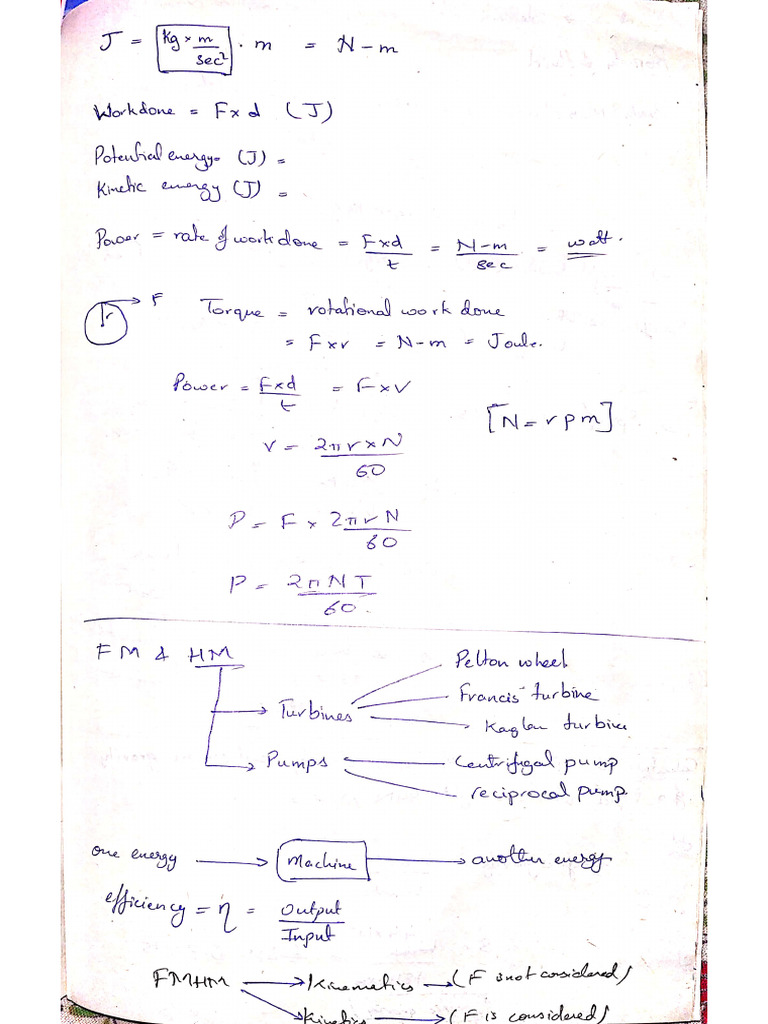 J = [kg × m / sec²] · m = N-m
Workdone = F×d (J)
Potential energy = (J) =
Kinetic energy (J) =
Power = rate of work done = F×d / t = N-m / sec = watt.
r → F Torque = rotational work done
= F×r = N-m = Joule.
Power = F×d / t = F×V
[N = rpm]
V = 2πr×N / 60
P = F × 2πrN / 60
P = 2πNT / 60.
FM & HM
Pelton wheel
Francis turbine
→ Turbines
Kaplan turbine
→ Pumps
Centrifugal pump
reciprocal pump
one energy → Machine → another energy
efficiency = η = Output / Input
FMHM → Kinematics → (F is not considered)
→ Kinetics → (F is considered)